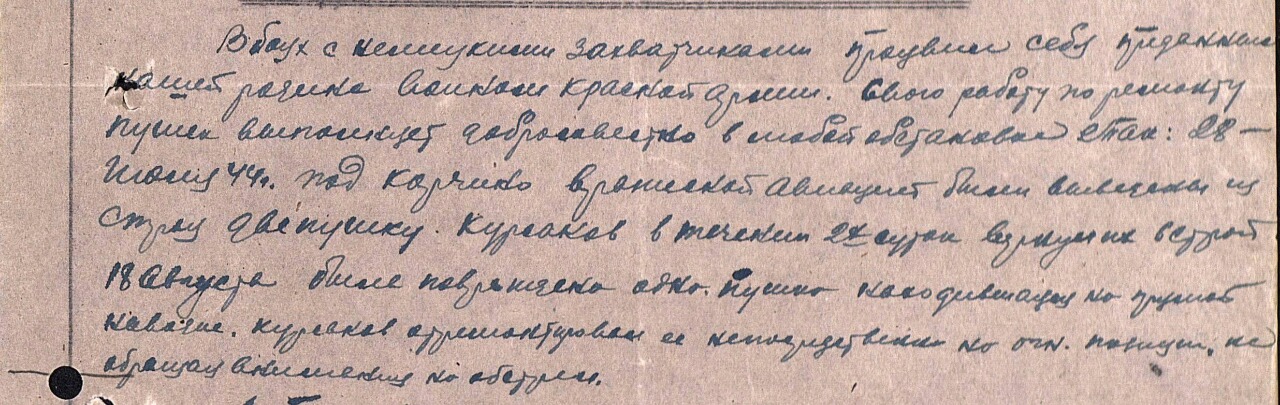 В боях с немецкими захватчиками проявил себя преданным
нашей родине воином Красной армии. Свою работу по ремонту
пушек выполняет добросовестно в любой обстановке так: 28 -
Июля 44г. под вражеской авиацией были выведены из
строя две пушки. Курсаков в течении 2х суток вернул их в строй
18 августа была повреждена одна. пушка находившаяся на прямой
наводке. Курсаков отремонтировал ее непосредственно на огн. позиции, не
обращая внимания на обстрел.